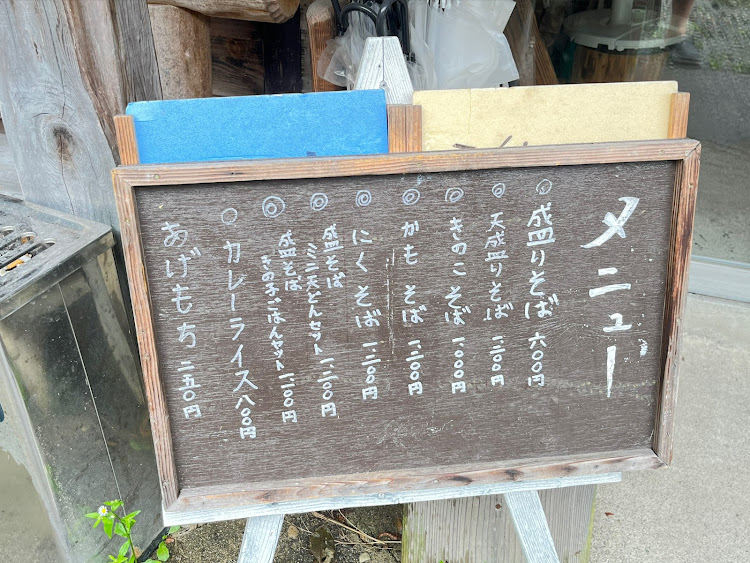 メニュー
◎ 盛りそば 六〇〇円
◎ 天盛りそば 一二〇〇円
◎ きのこそば 一〇〇〇円
◎ かもそば 一二〇〇円
◎ にくそば 一二〇〇円
◎ 盛そば
ミニ天どんセット 一二〇〇円
◎ 盛そば
きの子ごはんセット 一一〇〇円
○ カレーライス 八〇〇円
あげもち 二五〇円